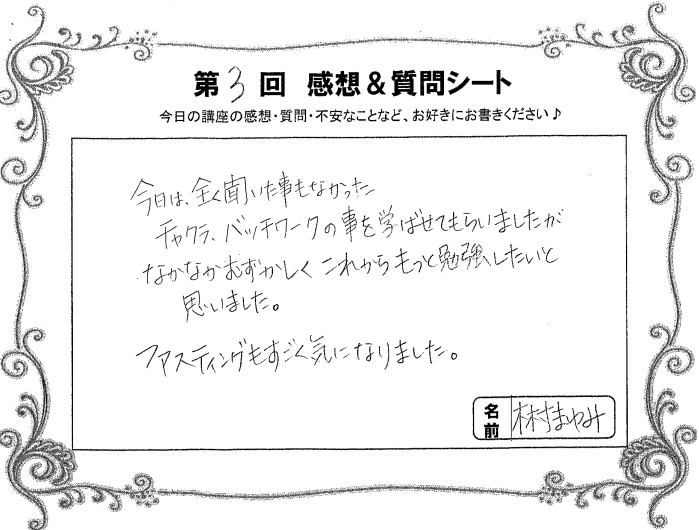 第3回 感想&質問シート
今日の講座の感想・質問・不安なことなど、お好きにお書きください♪
今日は、全く聞いた事もなかった
チャクラ、バッチワークの事を学ばせてもらいましたが
なかなかむずかしく これからもっと勉強したいと
思いました。
ファスティングもすごく気になりました。
名前 木村まゆみ